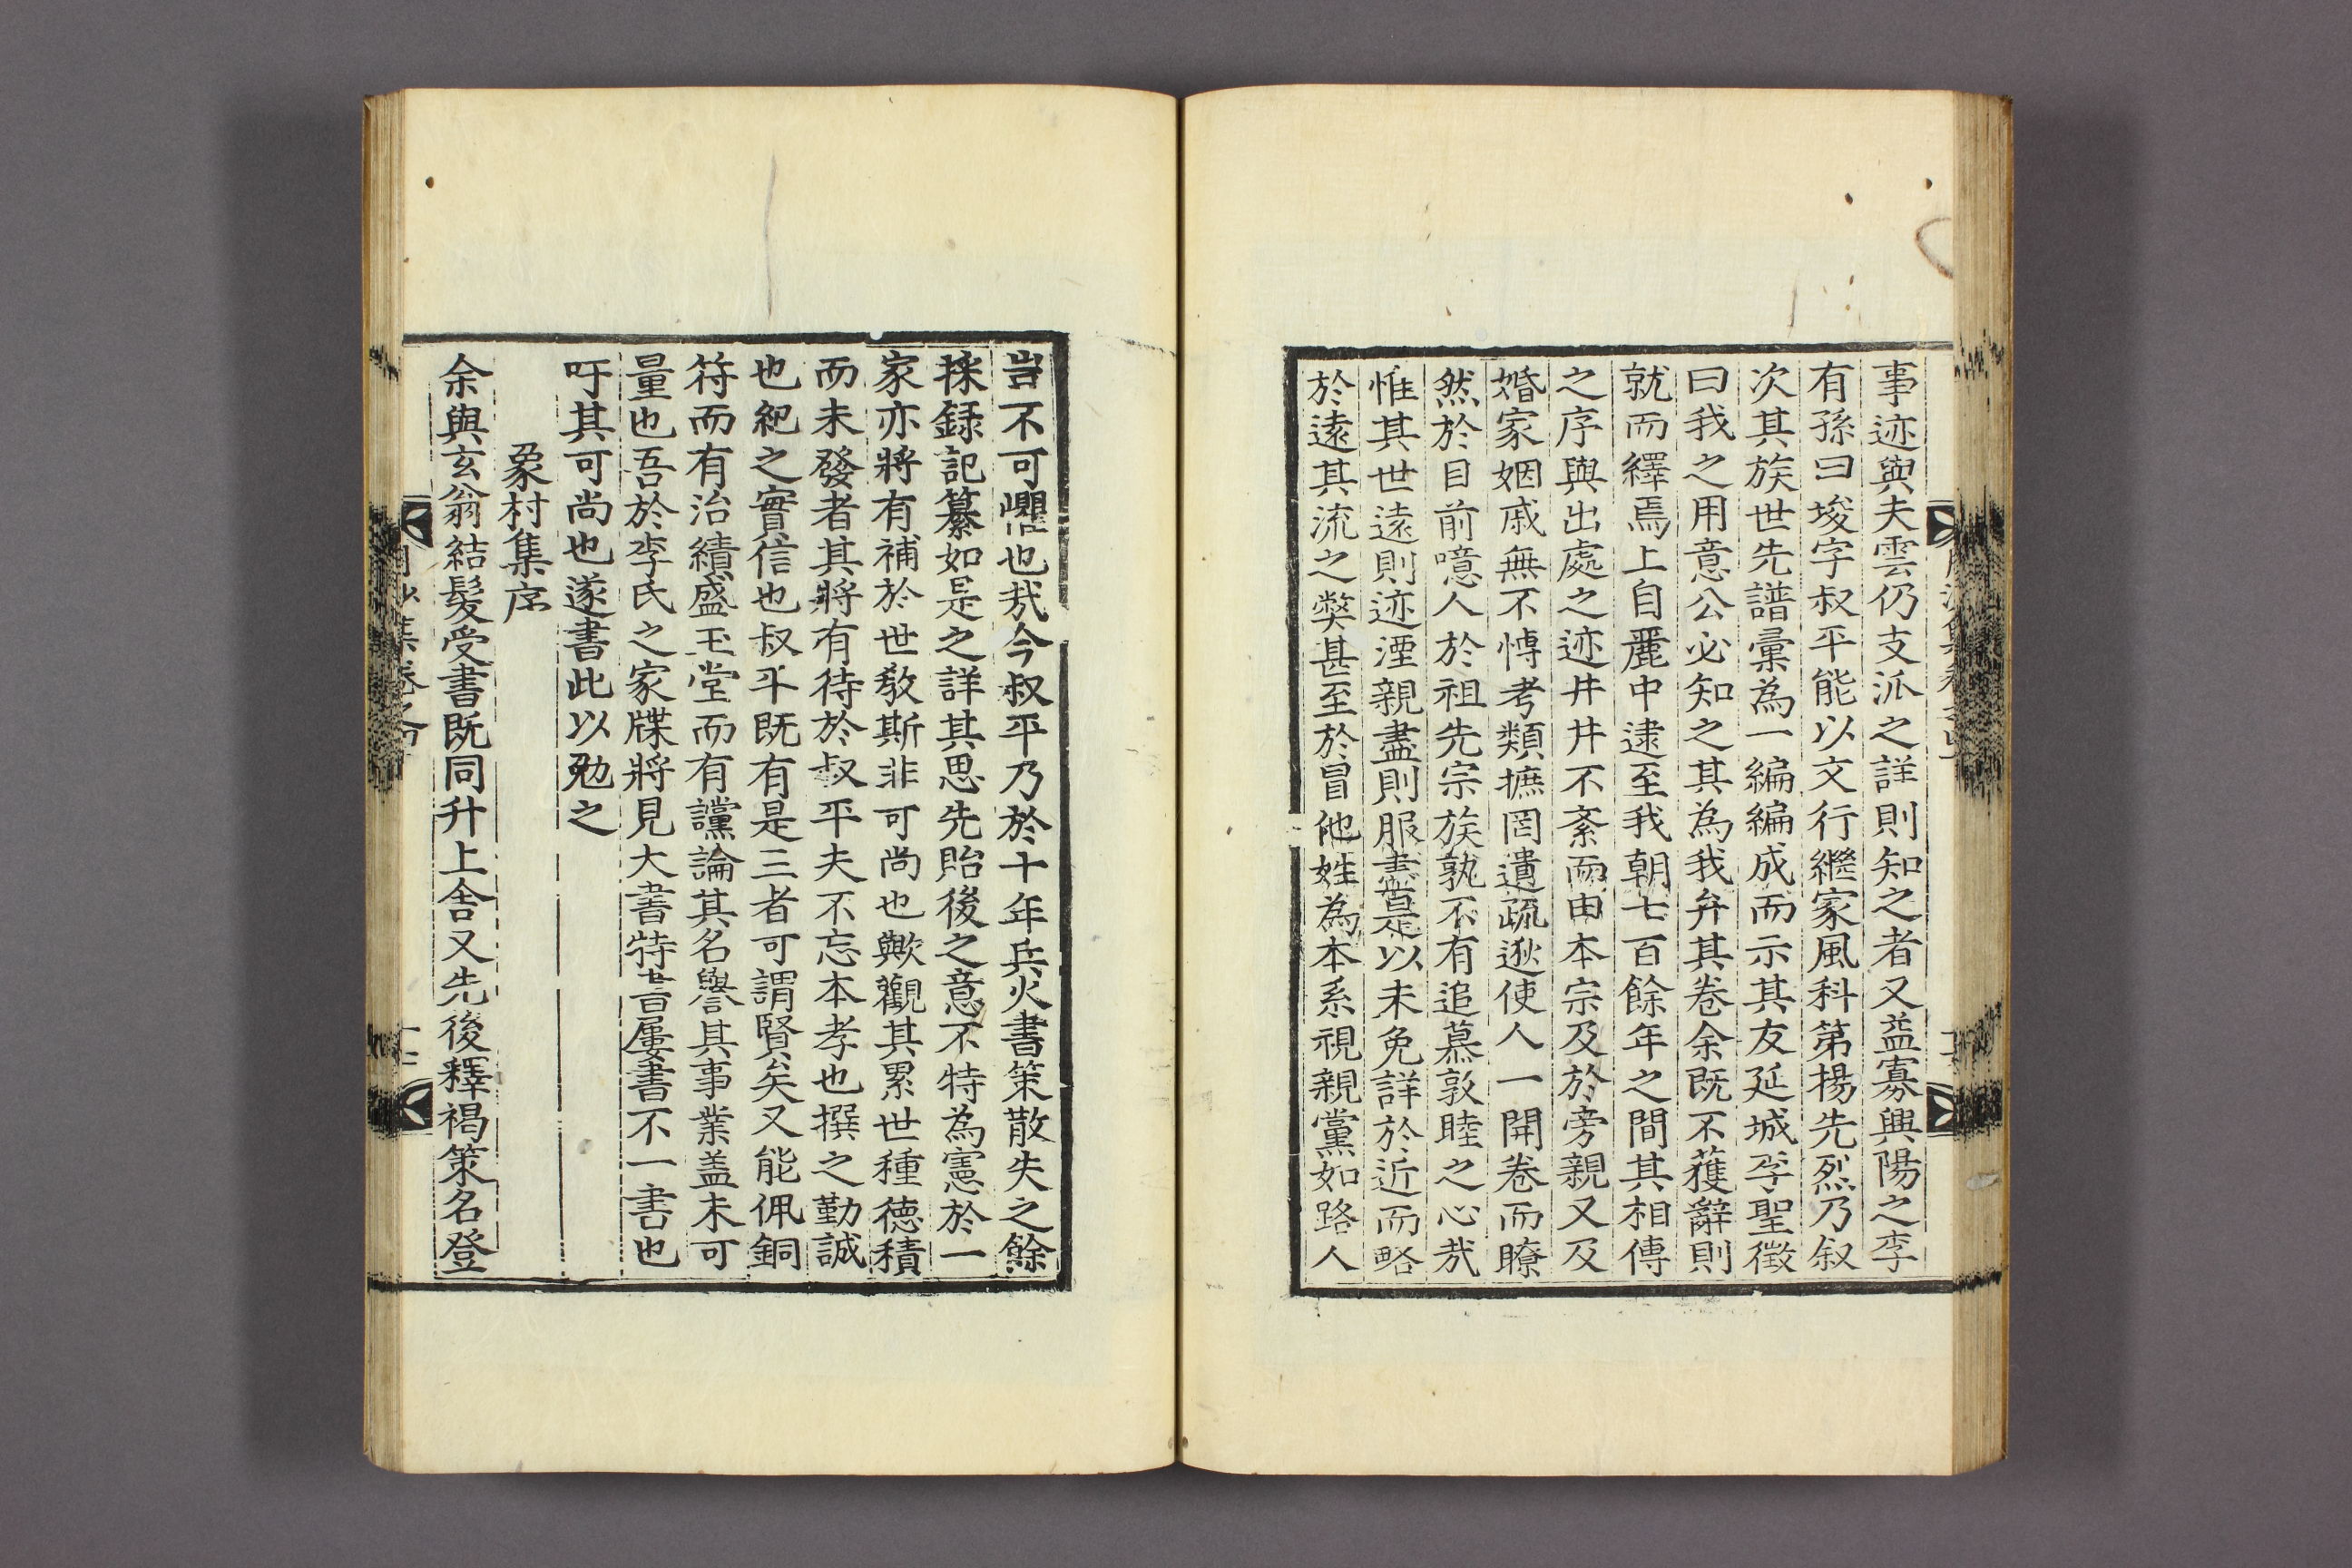 事迹與夫雲仍支派之詳則知之者又益寡興陽之李
有孫曰埈字叔平能以文行繼家風科第揚先烈乃叙
次其族世先譜彙為一編編成而示其友延城李聖徵
曰我之用意公必知之其為我弁其卷余既不獲辭則
就而繹焉上自麗中逮至我朝七百餘年之間其相傳
之序與出處之迹井井不紊而由本宗及於旁親又及
婚家姻戚無不博考類摭罔遺疏逖使人一開卷而瞭
然於目前噫人於祖先宗族孰不有追慕敦睦之心哉
惟其世遠則迹湮親盡則服盡是以未免詳於近而略
於遠其流之弊甚至於冒他姓為本系視親黨如路人
豈不可懼也哉今叔平乃於十年兵火書策散失之餘
採録記纂如是之詳其思先貽後之意不特為憲於一
家亦將有補於世教斯非可尚也歟觀其累世種德積
而未發者其將有待於叔平夫不忘本孝也撰之勤誠
也紀之實信也叔平既有是三者可謂賢矣又能佩銅
符而有治績盛玉堂而有讜論其名譽其事業盖未可
量也吾於李氏之家牒將見大書特書屢書不一書也
吁其可尚也遂書此以勉之
象村集序
余與玄翁結髮受書既同升上舍又先後釋褐策名登